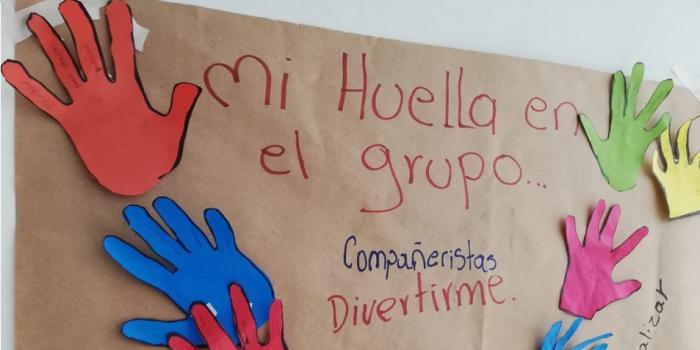 Mi Huella en
el grupo...
Compañeristas
Divertirme.